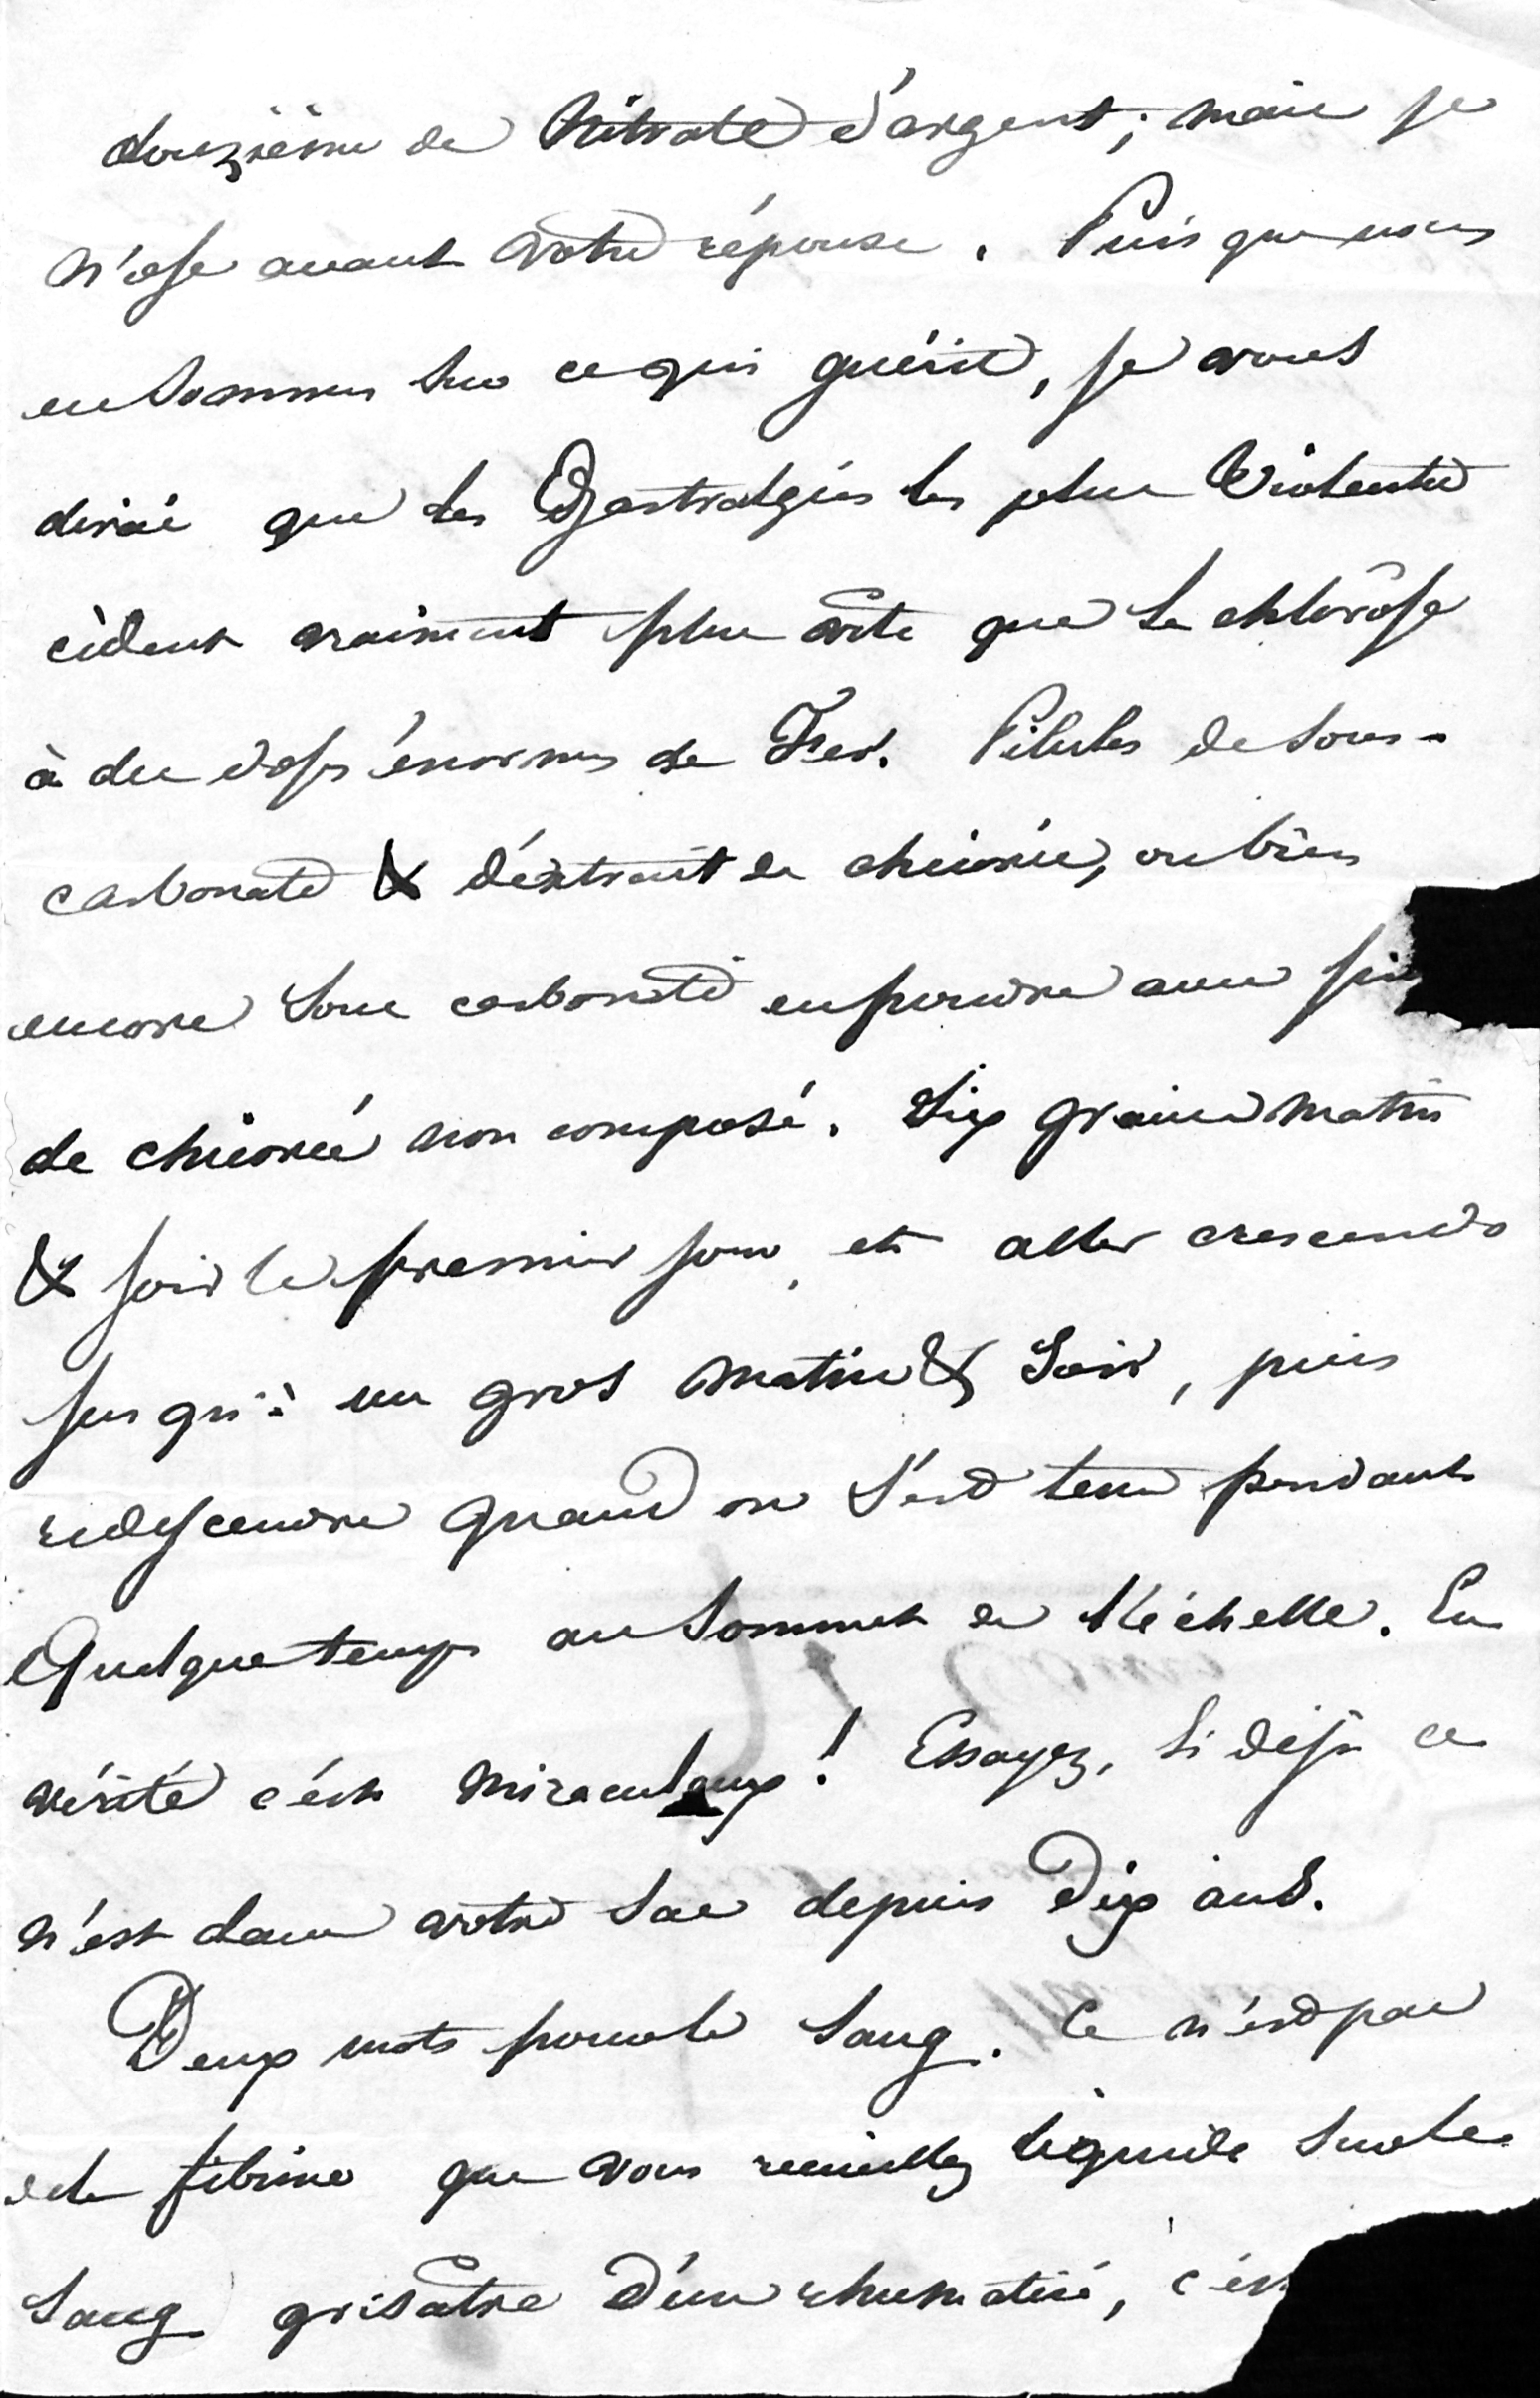 douzième de Nitrate d'argent; mais je
n'ose avant votre réponse. Puis que nous
en sommes sur ce qui guérit, je vous
dirai que les Gastralgies les plus violentes
cèdent vraiment plus vite que la chlorôse
à des doses énormes de Fer. Pilules de sous-
carbonate & d'extrait de chicorée, ou bien
encore sous carbonate en poudre avec
de chicorée non composé. Six grains matin
& soir le premier jour, et aller crescendo
jusqu'à un gros matin & soir, puis
redescendre quand on s'est tenu pendant
quelque temps au sommet de l'échelle. En
vérité c'est miraculeux! Essayez, si déjà ce
n'est dans votre sac depuis dix ans.
Deux mots pour le sang. Ce n'est pas
de la fibrine que vous recueillez liquide sur le
sang grisâtre d'un rhumatisé, c'es